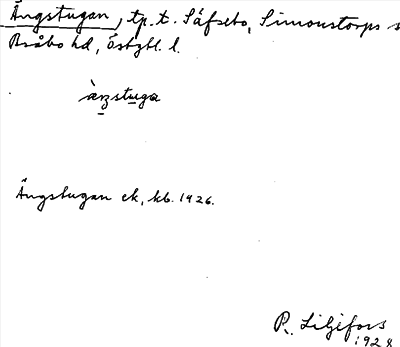 Ängstugan, tp. t. Säfsebo, Simonstorps s
Bråbo hd, Östgtl. l.
àŋstuga
Ängstugan ek, kb. 1926.
R. Liljefors
1928